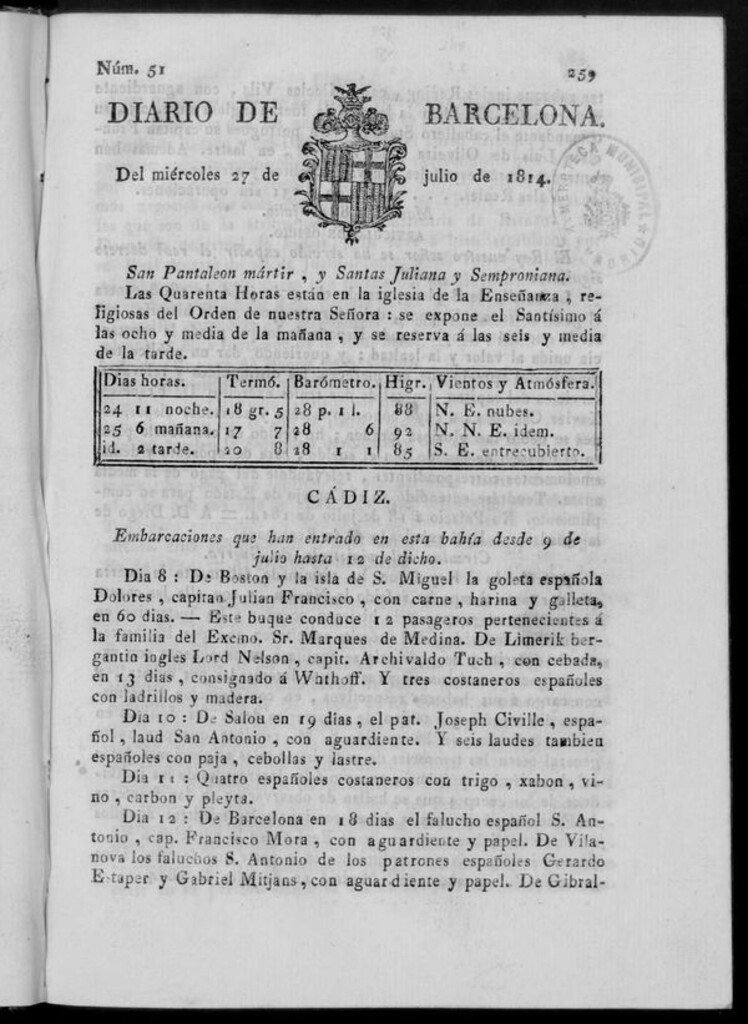 Núm. 51
259
DIARIO DE BARCELONA.
Del miércoles 27 de julio de 1814.
San Pantaleon mártir , y Santas Juliana y Semproniana.
Las Quarenta Horas están en la iglesia de la Enseñanza , re-
ligiosas del Orden de nuestra Señora : se expone el Santísimo á
las ocho y media de la mañana , y se reserva á las seis y media
de la tarde.
Dias horas. Termó. Barómetro. Higr. Vientos y Atmósfera.
24 11 noche. 18 gr. 5 28 p. 1 l. 88 N. E. nubes.
25 6 mañana. 17 7 28 6 92 N. N. E. idem.
id. 2 tarde. 20 8 28 1 1 85 S. E. entrecubierto.
CÁDIZ.
Embarcaciones que han entrado en esta bahía desde 9 de
julio hasta 12 de dicho.
Dia 8 : De Boston y la isla de S. Miguel la goleta española
Dolores , capitan Julian Francisco , con carne , harina y galleta,
en 60 dias. — Este buque conduce 12 pasageros pertenecientes á
la familia del Excmo. Sr. Marques de Medina. De Limerik ber-
gantin ingles Lord Nelson , capit. Archivaldo Tuch , con cebada,
en 13 dias , consignado á Wathoff. Y tres costaneros españoles
con ladrillos y madera.
Dia 10 : De Salou en 19 dias , el pat. Joseph Civille , espa-
ñol , laud San Antonio , con aguardiente. Y seis laudes tambien
españoles con paja , cebollas y lastre.
Dia 11 : Quatro españoles costaneros con trigo , xabon , vi-
no , carbon y pleyta.
Dia 12 : De Barcelona en 18 dias el falucho español S. An-
tonio , cap. Francisco Mora , con aguardiente y papel. De Vila-
nova los faluchos S. Antonio de los patrones españoles Gerardo
Estaper y Gabriel Mitjans , con aguardiente y papel. De Gibral-